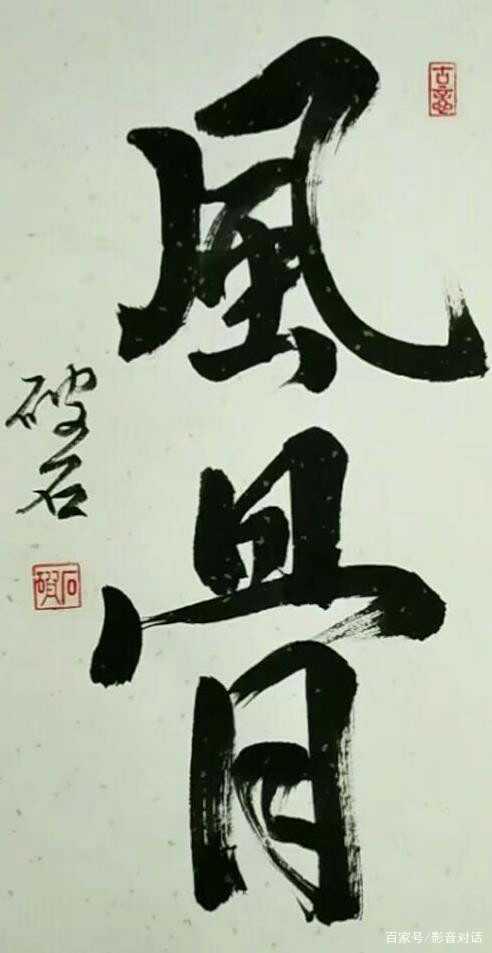 風骨
破石
百家号/影音对话